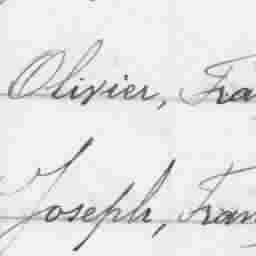 Olivier, Fra
Joseph, Fran